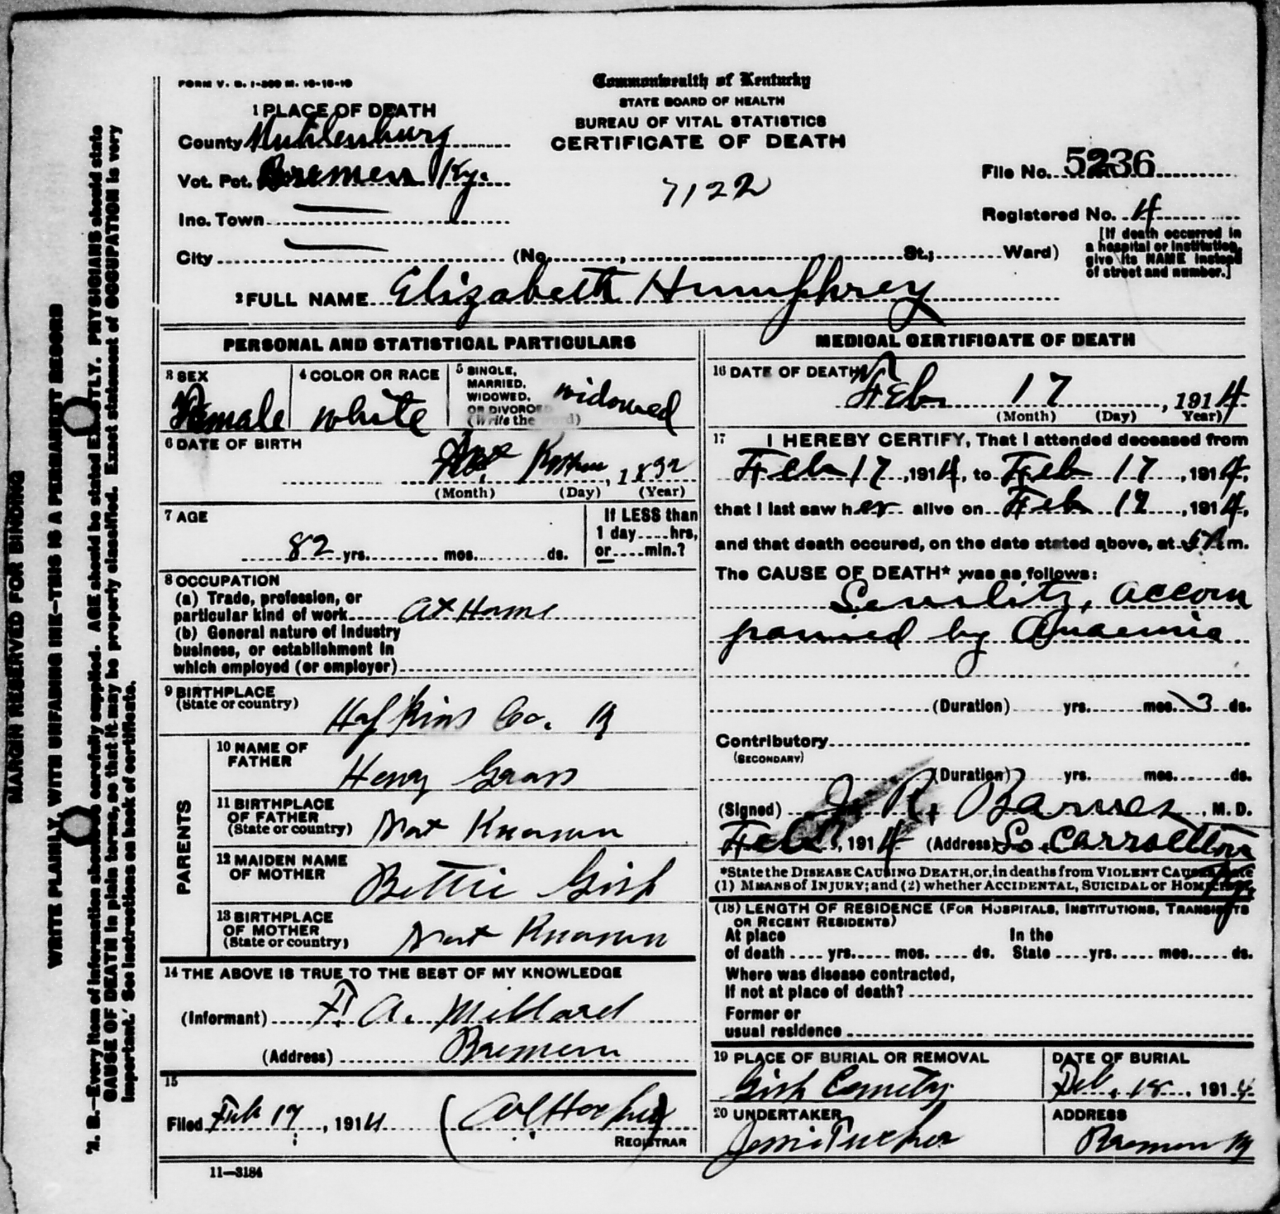 FORM V. S. 1-200 M. 10-15-10
Commonwealth of Kentucky
STATE BOARD OF HEALTH
BUREAU OF VITAL STATISTICS
CERTIFICATE OF DEATH
7122
1 PLACE OF DEATH
County Muhlenburg
Vot. Pct. Bremen Ky.
Inc. Town
City (No. , St.; Ward)
File No. 5236
Registered No. 4
[If death occurred in
a hospital or institution,
give its NAME instead
of street and number.]
2 FULL NAME Elizabeth Humphrey
PERSONAL AND STATISTICAL PARTICULARS
3 SEX
Female
4 COLOR OR RACE
white
5 SINGLE,
MARRIED,
WIDOWED,
OR DIVORCED
(Write the word)
widowed
6 DATE OF BIRTH
Not Known, 1832
(Month) (Day) (Year)
7 AGE
82 yrs. mos. ds.
If LESS than
1 day hrs,
or min.?
8 OCCUPATION
(a) Trade, profession, or
particular kind of work At Home
(b) General nature of industry
business, or establishment in
which employed (or employer)
9 BIRTHPLACE
(State or country)
Hopkins Co. Ky
PARENTS
10 NAME OF
FATHER
Henry Grass
11 BIRTHPLACE
OF FATHER
(State or country)
Not Known
12 MAIDEN NAME
OF MOTHER
Bettie Gish
13 BIRTHPLACE
OF MOTHER
(State or country)
Not Known
14 THE ABOVE IS TRUE TO THE BEST OF MY KNOWLEDGE
(Informant) F. A. Millard
(Address) Bremen
15
Filed Feb 17, 1914
REGISTRAR
11-3184
MEDICAL CERTIFICATE OF DEATH
16 DATE OF DEATH
Feb 17, 1914
(Month) (Day) Year)
17 I HEREBY CERTIFY, That I attended deceased from
Feb 17, 1914, to Feb 17, 1914,
that I last saw her alive on Feb 17, 1914,
and that death occured, on the date stated above, at 5 A m.
The CAUSE OF DEATH* was as follows:
Senility, accom
panied by Anaemia
(Duration) yrs. mos. 3 ds.
Contributory
(SECONDARY)
(Duration) yrs. mos. ds.
(Signed) J. R. Barnes, M. D.
Feb 17, 1914 (Address) So. Carrollton
Ky
*State the DISEASE CAUSING DEATH, or, in deaths from VIOLENT CAUSES, state
(1) MEANS OF INJURY; and (2) whether ACCIDENTAL, SUICIDAL or HOMICIDAL.
(18) LENGTH OF RESIDENCE (FOR HOSPITALS, INSTITUTIONS, TRANSIENTS
OR RECENT RESIDENTS)
At place In the
of death yrs. mos. ds. State yrs. mos. ds.
Where was disease contracted,
If not at place of death?
Former or
usual residence
19 PLACE OF BURIAL OR REMOVAL
Gish Cemetry
DATE OF BURIAL
Feb. 18, 1914
20 UNDERTAKER
Tucker
ADDRESS
Bremen Ky
MARGIN RESERVED FOR BINDING
WRITE PLAINLY, WITH UNFADING INK—THIS IS A PERMANENT RECORD
N. B.—Every item of information should be carefully supplied. AGE should be stated EXACTLY. PHYSICIANS should state
CAUSE OF DEATH in plain terms, so that it may be properly classified. Exact statement of OCCUPATION is very
important. See instructions on back of certificate.